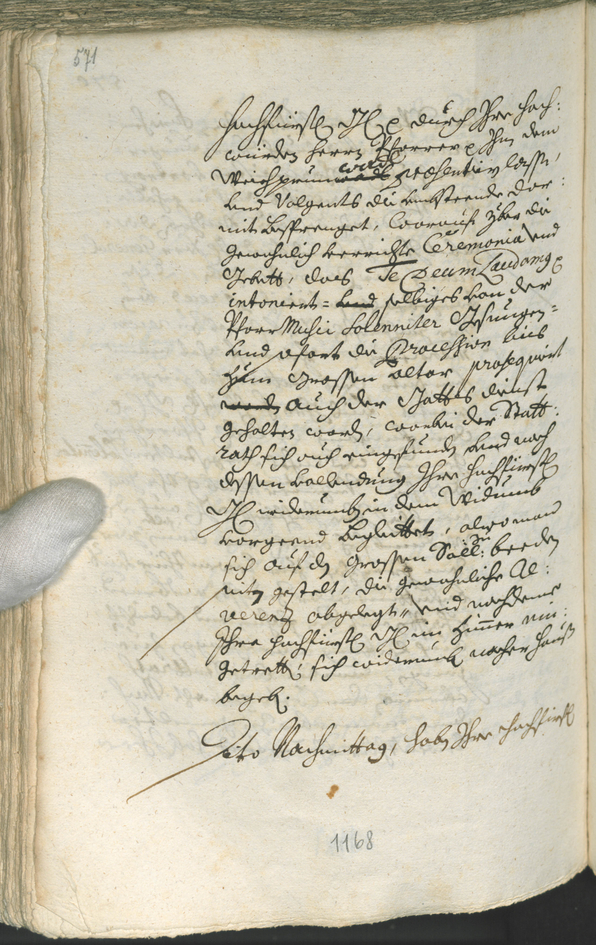 571
Hochfürstl: Gl: e durch Ihre Hoch:
würden Herrn Pfarrer e Ihm dem
Weichprunn wadl præsentiern lassen,
und Volgents die umbsteende dar:
mit besprenget, Worauf yber die
gewohnlich verrichte Ceremonia und
Gebett, das Te Deum Laudamg
intoniert = selbiges von der
Pfarr Music Solenniter Gesungen =
und sofort die Procession bis
zum Grossen altar prosequiert
auch der Gotts dienst
gehalten worden, worbei der Statt:
rath sich auch eingefunden und nach
dessen Vollendung Ihre Hochfürstl:
Gl: widerumb in dem Widumb
vorgeend begleittet, alwo man
sich auf den Grossen Säll: beeden
seiten gestelt, die gewohnliche Re:
verenz abgelegt, und nachdeme
Ihre Hochfürstl: Gl: im Zimmer ein:
getretten, sich widerumb nacher Hauß
begeben.
Dito Nachmittag, haben Ihre Hochfürstl:
1168